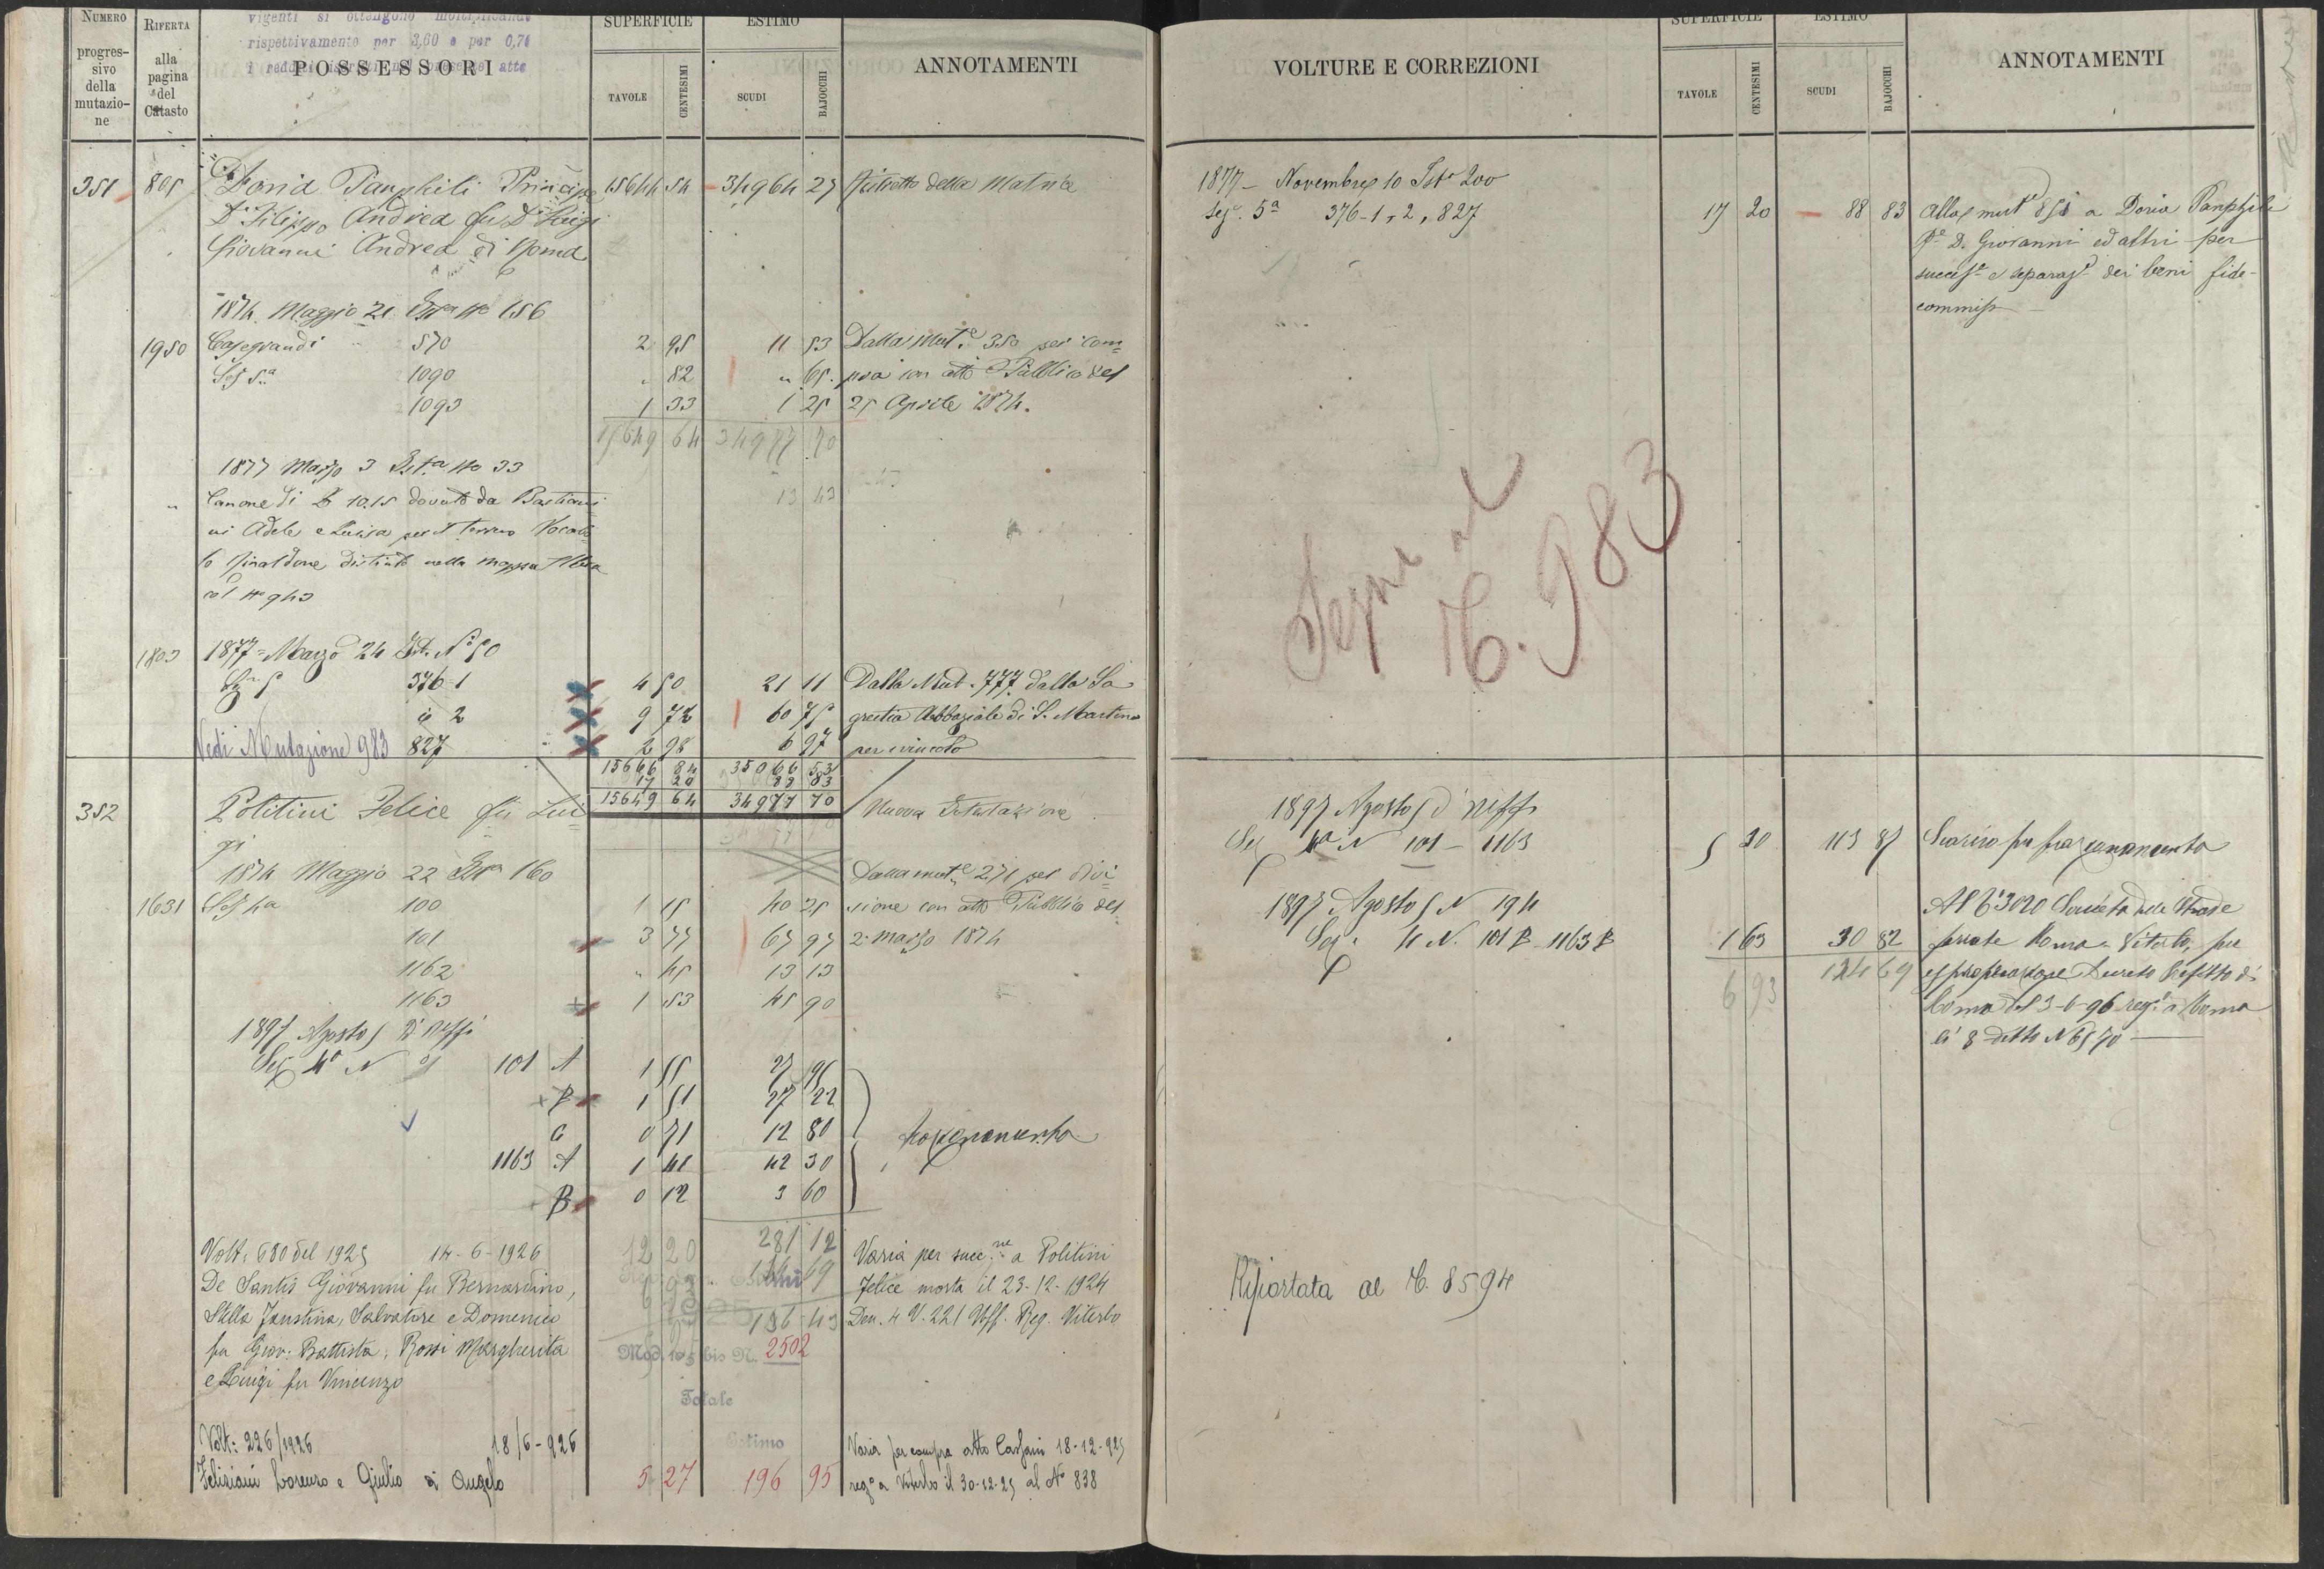 NUMERO
progres-
sivo
della
mutazio-
ne
RIFERTA
alla
pagina
del
Catasto
vigenti si ottengono moltiplicando
rispettivamente per 3,60 e per 0,71
POSSESSORI
SUPERFICIE
TAVOLE
CENTESIMI
ESTIMO
SCUDI
BAJOCCHI
ANNOTAMENTI
351 805 Doria Panphili Principe 15644 54 34964 27 della Matrice
D. Filippo Andrea fu D. Luigi
Giovanni Andrea di Roma
1874 Maggio 21 No 156
1950 Casegrandi 570 2 95 11 53 Dalla Mut.e 350 per com=
Sez 5.a 1090 " 82 " 65 pra con atto Pubblico del
1093 1 33 1 25 25 Aprile 1874.
15649 64 34977 70
1877 Marzo 3 Ist.a No 33
" Canone di £ 10.15 dovuto da Bastian 13 43
ni Adele e Luisa per il terreno Vocab
lo distinto nella mappa
col No 943
1803 1877 = Marzo 24 Ist. No 50
Sez. 5 376-1 4 50 21 11 Dalla Mut. 777 dalla Sa
is 2 9 72 60 75 grestia Abbaziale di S. Martino
Vedi Mutazione 983 827 2 98 6 97 per svincolo
15666 84 35066 53
17 20 88 83
15649 64 34977 70
352 Politini Felice fu Lui= Nuova Intestazione
gi
1874 Maggio 22 160 Dalla mut.e 271 per divi=
1631 Sez 4a 100 1 15 40 25 sione con atto Pubblico del
101 3 77 67 97 2 marzo 1874
1162 " 45 13 13
1163 1 53 45 90
1897 Agosto 5
Sez 4a N 101 A 1 55
B 1 51 27 22
C 0 71 12 80 frazionamento
1163 A 1 41 42 30
B 0 12 3 60
12 20 281 12
Volt. 680 del 1925 14-6-1926 Varia per succ.ne a Politini
De Santis Giovanni fu Bernardino, Felice morta il 23-12-1924
Stella Faustina, Salvatore e Domenico 136 43 Den. 4 V. 221 Uff. Reg. Viterbo
fu Giov. Battista, Rossi Margherita Mod. 105 bis N. 2502
e Luigi fu Vincenzo
Totale
Volt: 226/1926 18/6-926 Estimo Varia per compra atto 18-12-925
Feliziani Lorenzo e Giulio di Angelo 5 27 196 95 reg.o a Viterbo il 30-12-25 al No 838
VOLTURE E CORREZIONI
SUPERFICIE
TAVOLE
CENTESIMI
ESTIMO
SCUDI
BAJOCCHI
ANNOTAMENTI
1877 - Novembre 10 Ist.a 200
Sez. 5a 376-1, 2, 827 17 20 88 83 Alla mut.e 851 a Doria Panphili
Pe D. Giovanni ed altri per
success.e e separaz.e dei beni fide-
commiss
Segue al
M. 983
1897 Agosto 5
Sez 4a N 101 - 1163 5 30 113 87 Scarico per frazionamento
1897 Agosto 5 N 194 Al 3020 Società delle Strade
Sez. 4 N. 101 B 1163 B 1 63 30 82 ferrate Roma Viterbo, per
6 93 144 69 espropriazione Decreto Prefetto di
Roma del 3-6-96 reg.o a Roma
li 8 detto N 6570
Riportata al M. 8594